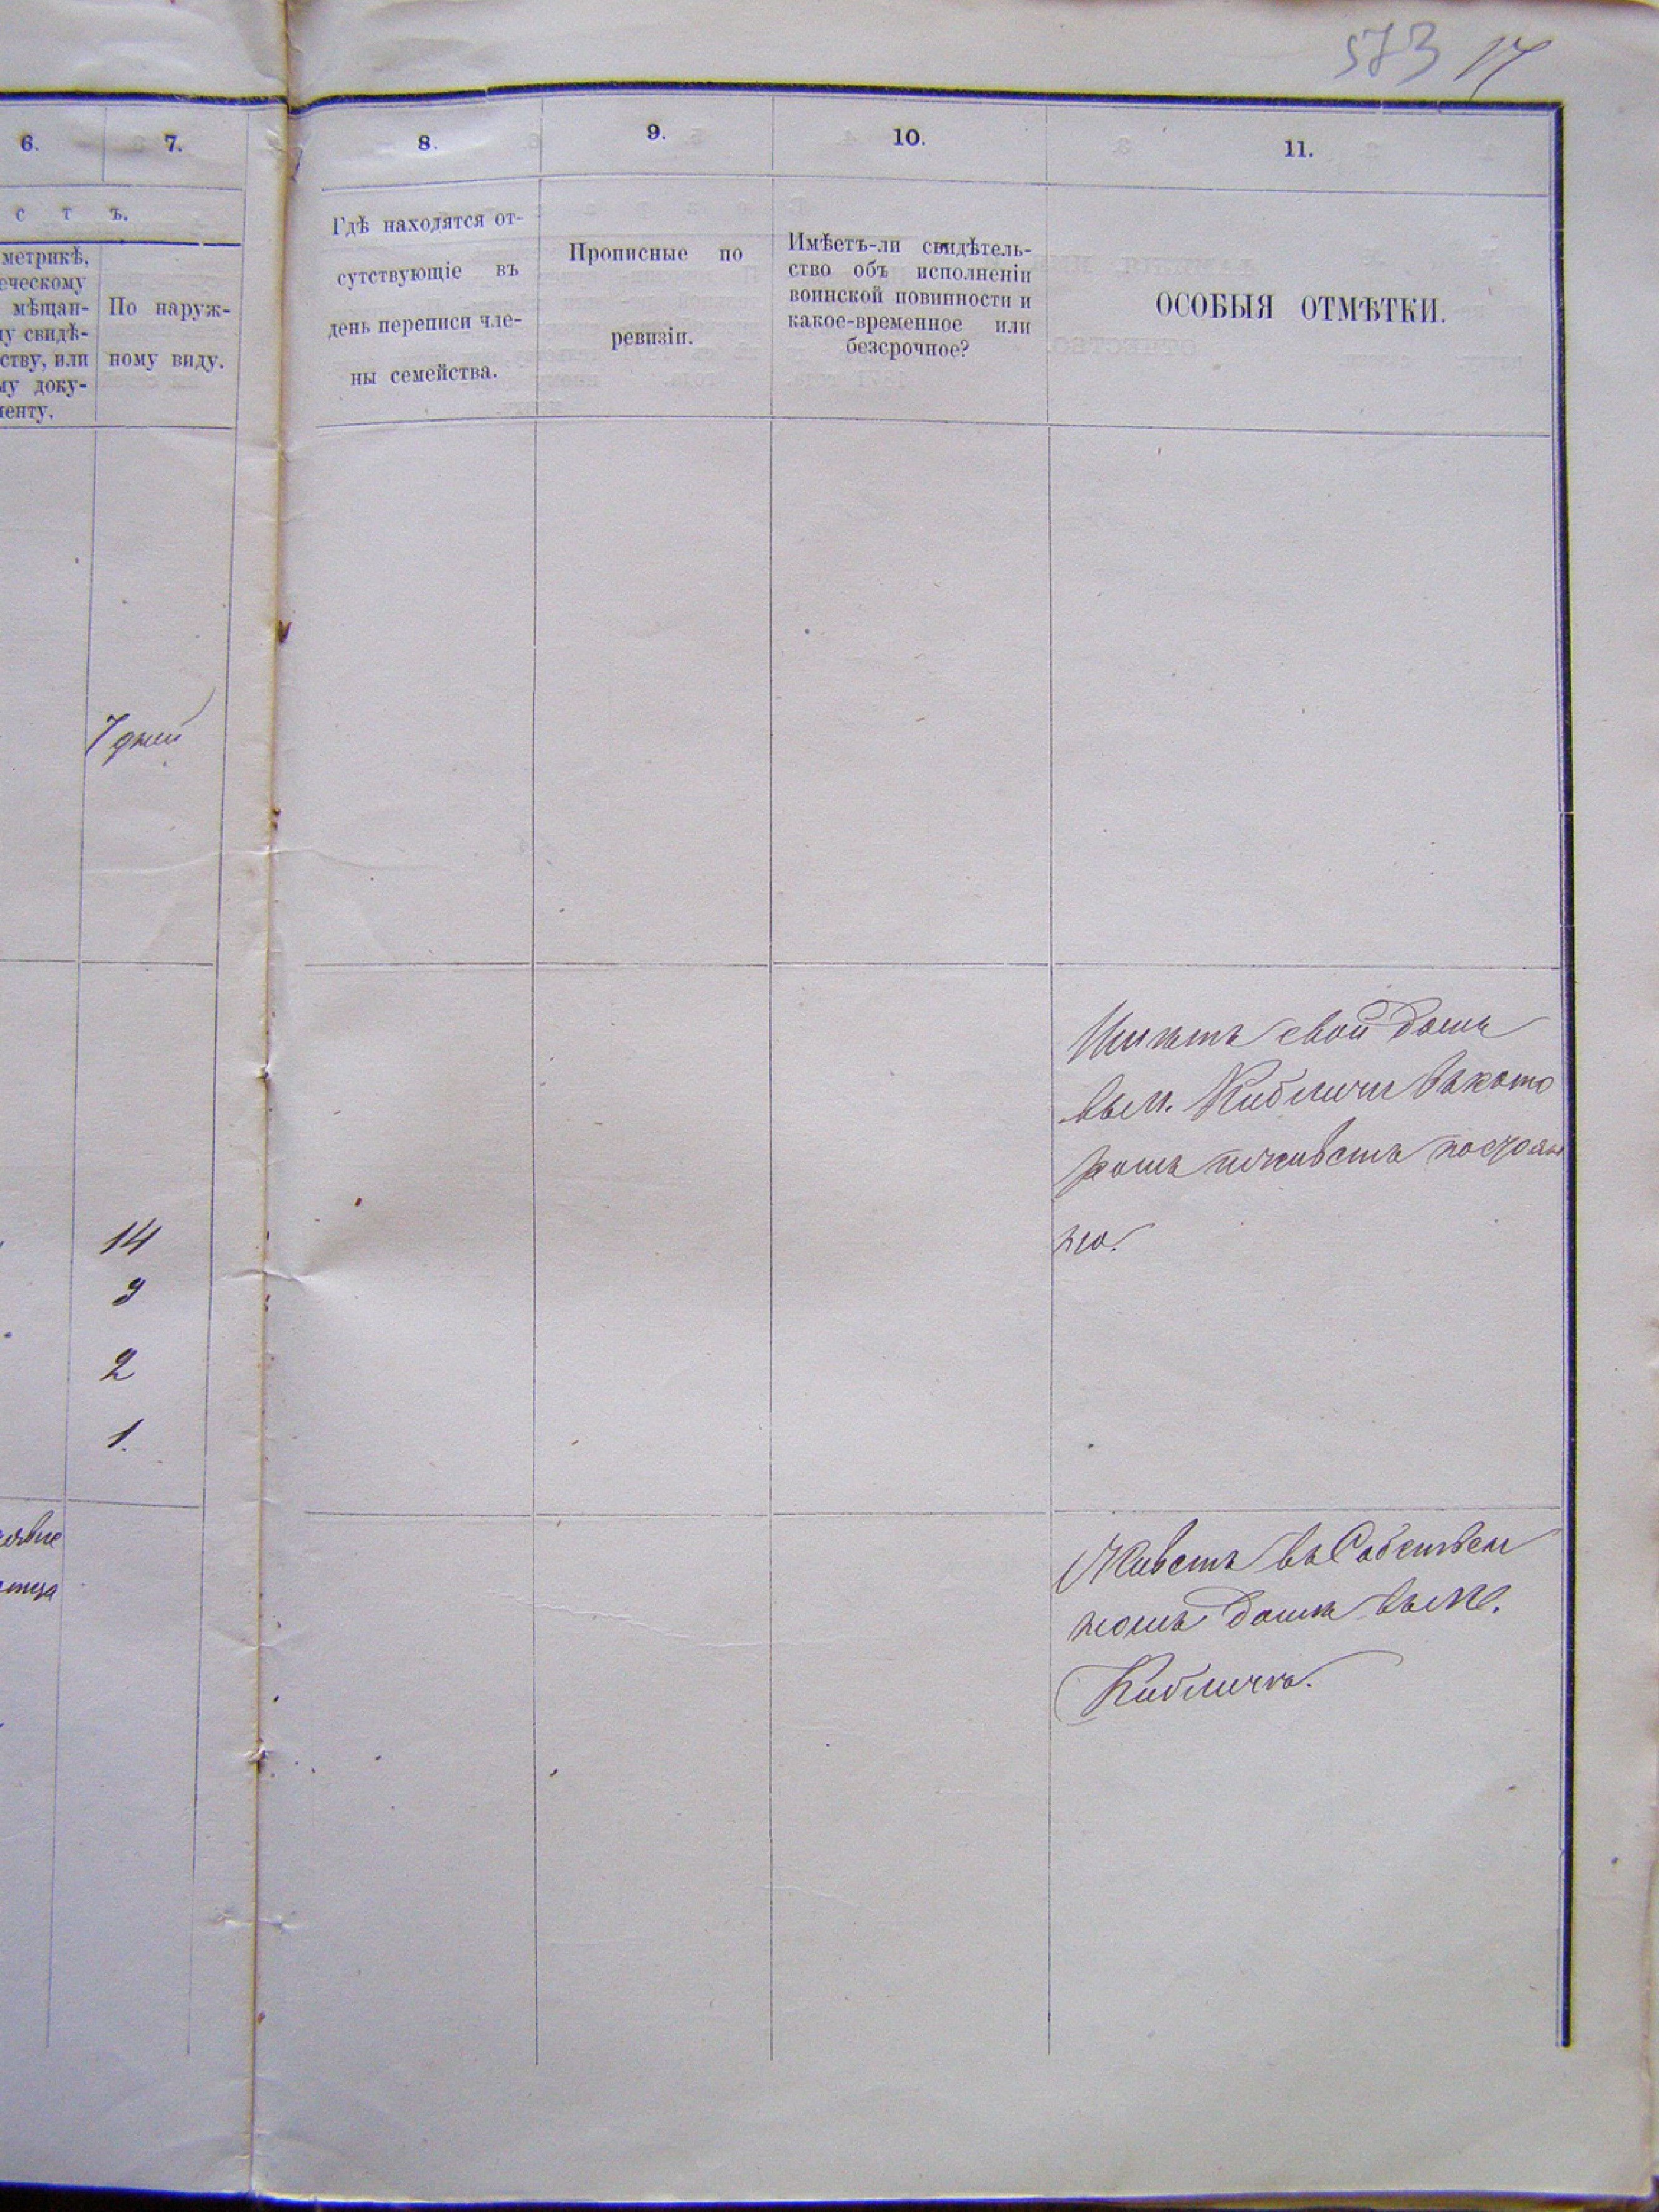 573 17
6.
7.
с т ъ.
метрикѣ,
ческому
мѣщан-
му свидѣ-
ству, или
му доку-
менту.
По наруж-
ному виду.
8.
9.
10.
11.
Гдѣ находятся от-
сутствующіе въ
день переписи чле-
ны семейства.
Прописные по
ревизіи.
Имѣетъ-ли свидѣтель-
ство объ исполненіи
воинской повинности и
какое-временное или
безсрочное?
ОСОБЫЯ ОТМѢТКИ.
7 дней
Имѣетъ свой домъ
въ м. Кибличи въ кото
ромъ живетъ постоян
но.
14
9
2
1.
Живетъ въ Собствен
номъ домѣ въ М.
Кибличѣ.